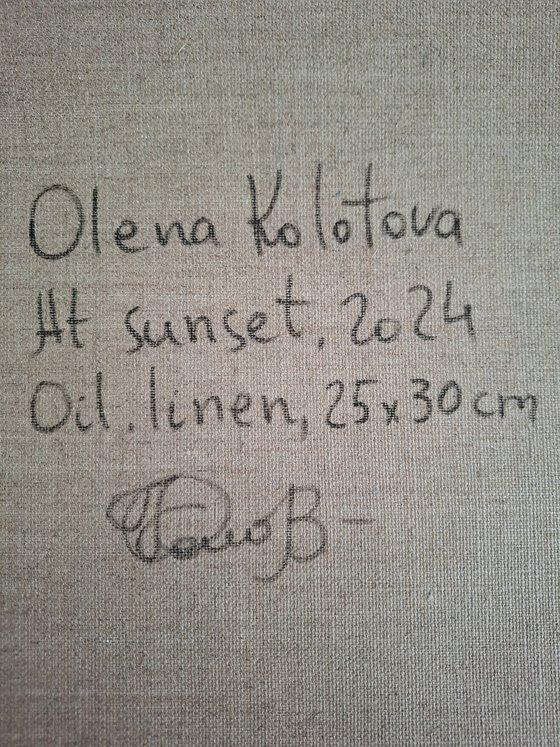 Olena Kolotova
At sunset, 2024
Oil. linen, 25x30cm